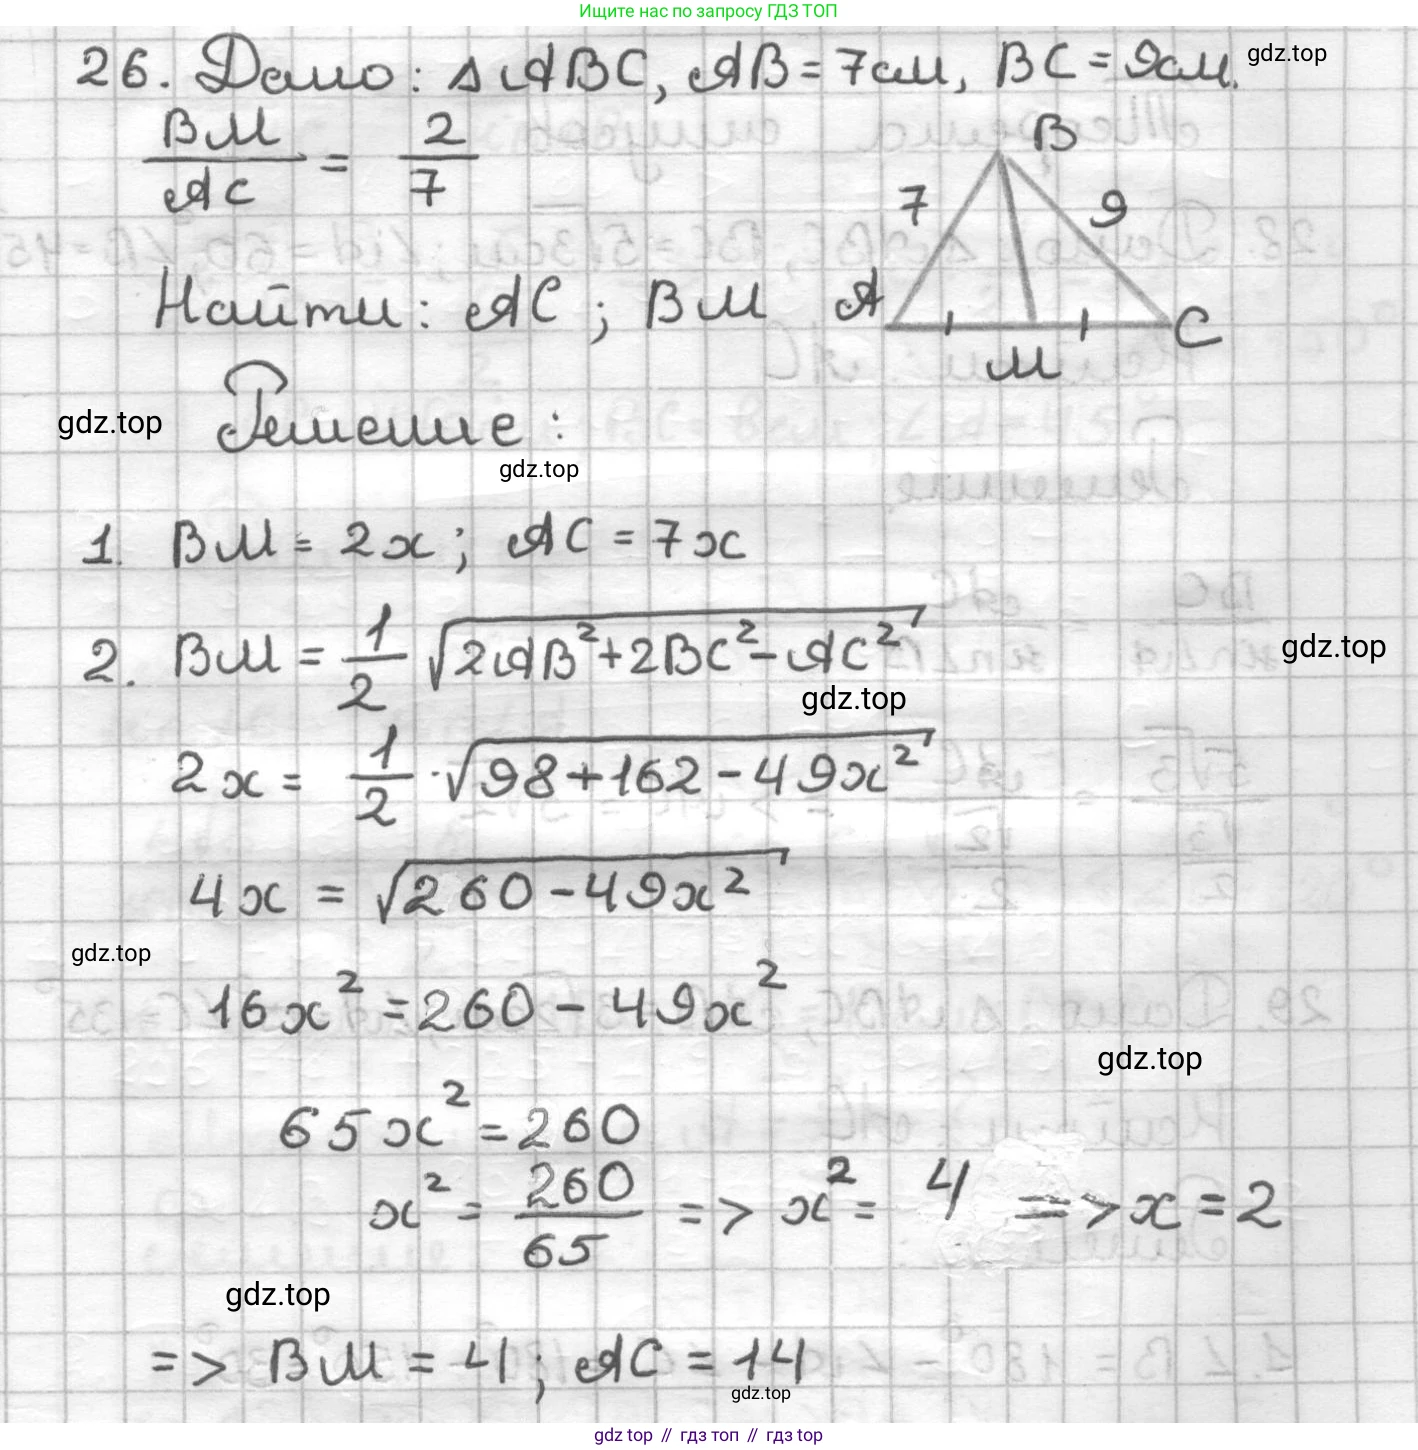 Ищите нас по запросу ГДЗ ТОП
26. Дано: △ABC, AB = 7см, BC = 9см.
gdz.top
BM/AC = 2/7
B
7
9
A
C
M
Найти: AC; BM
Решение:
gdz.top
gdz.top
1. BM = 2x; AC = 7x
2. BM = 1/2 √(2AB² + 2BC² - AC²)
gdz.top
gdz.top
2x = 1/2 · √(98 + 162 - 49x²)
4x = √(260 - 49x²)
gdz.top
16x² = 260 - 49x²
gdz.top
65x² = 260
x² = 260/65 => x² = 4 => x = 2
gdz.top
=> BM = 4; AC = 14
gdz.top
gdz top // гдз топ // гдз top